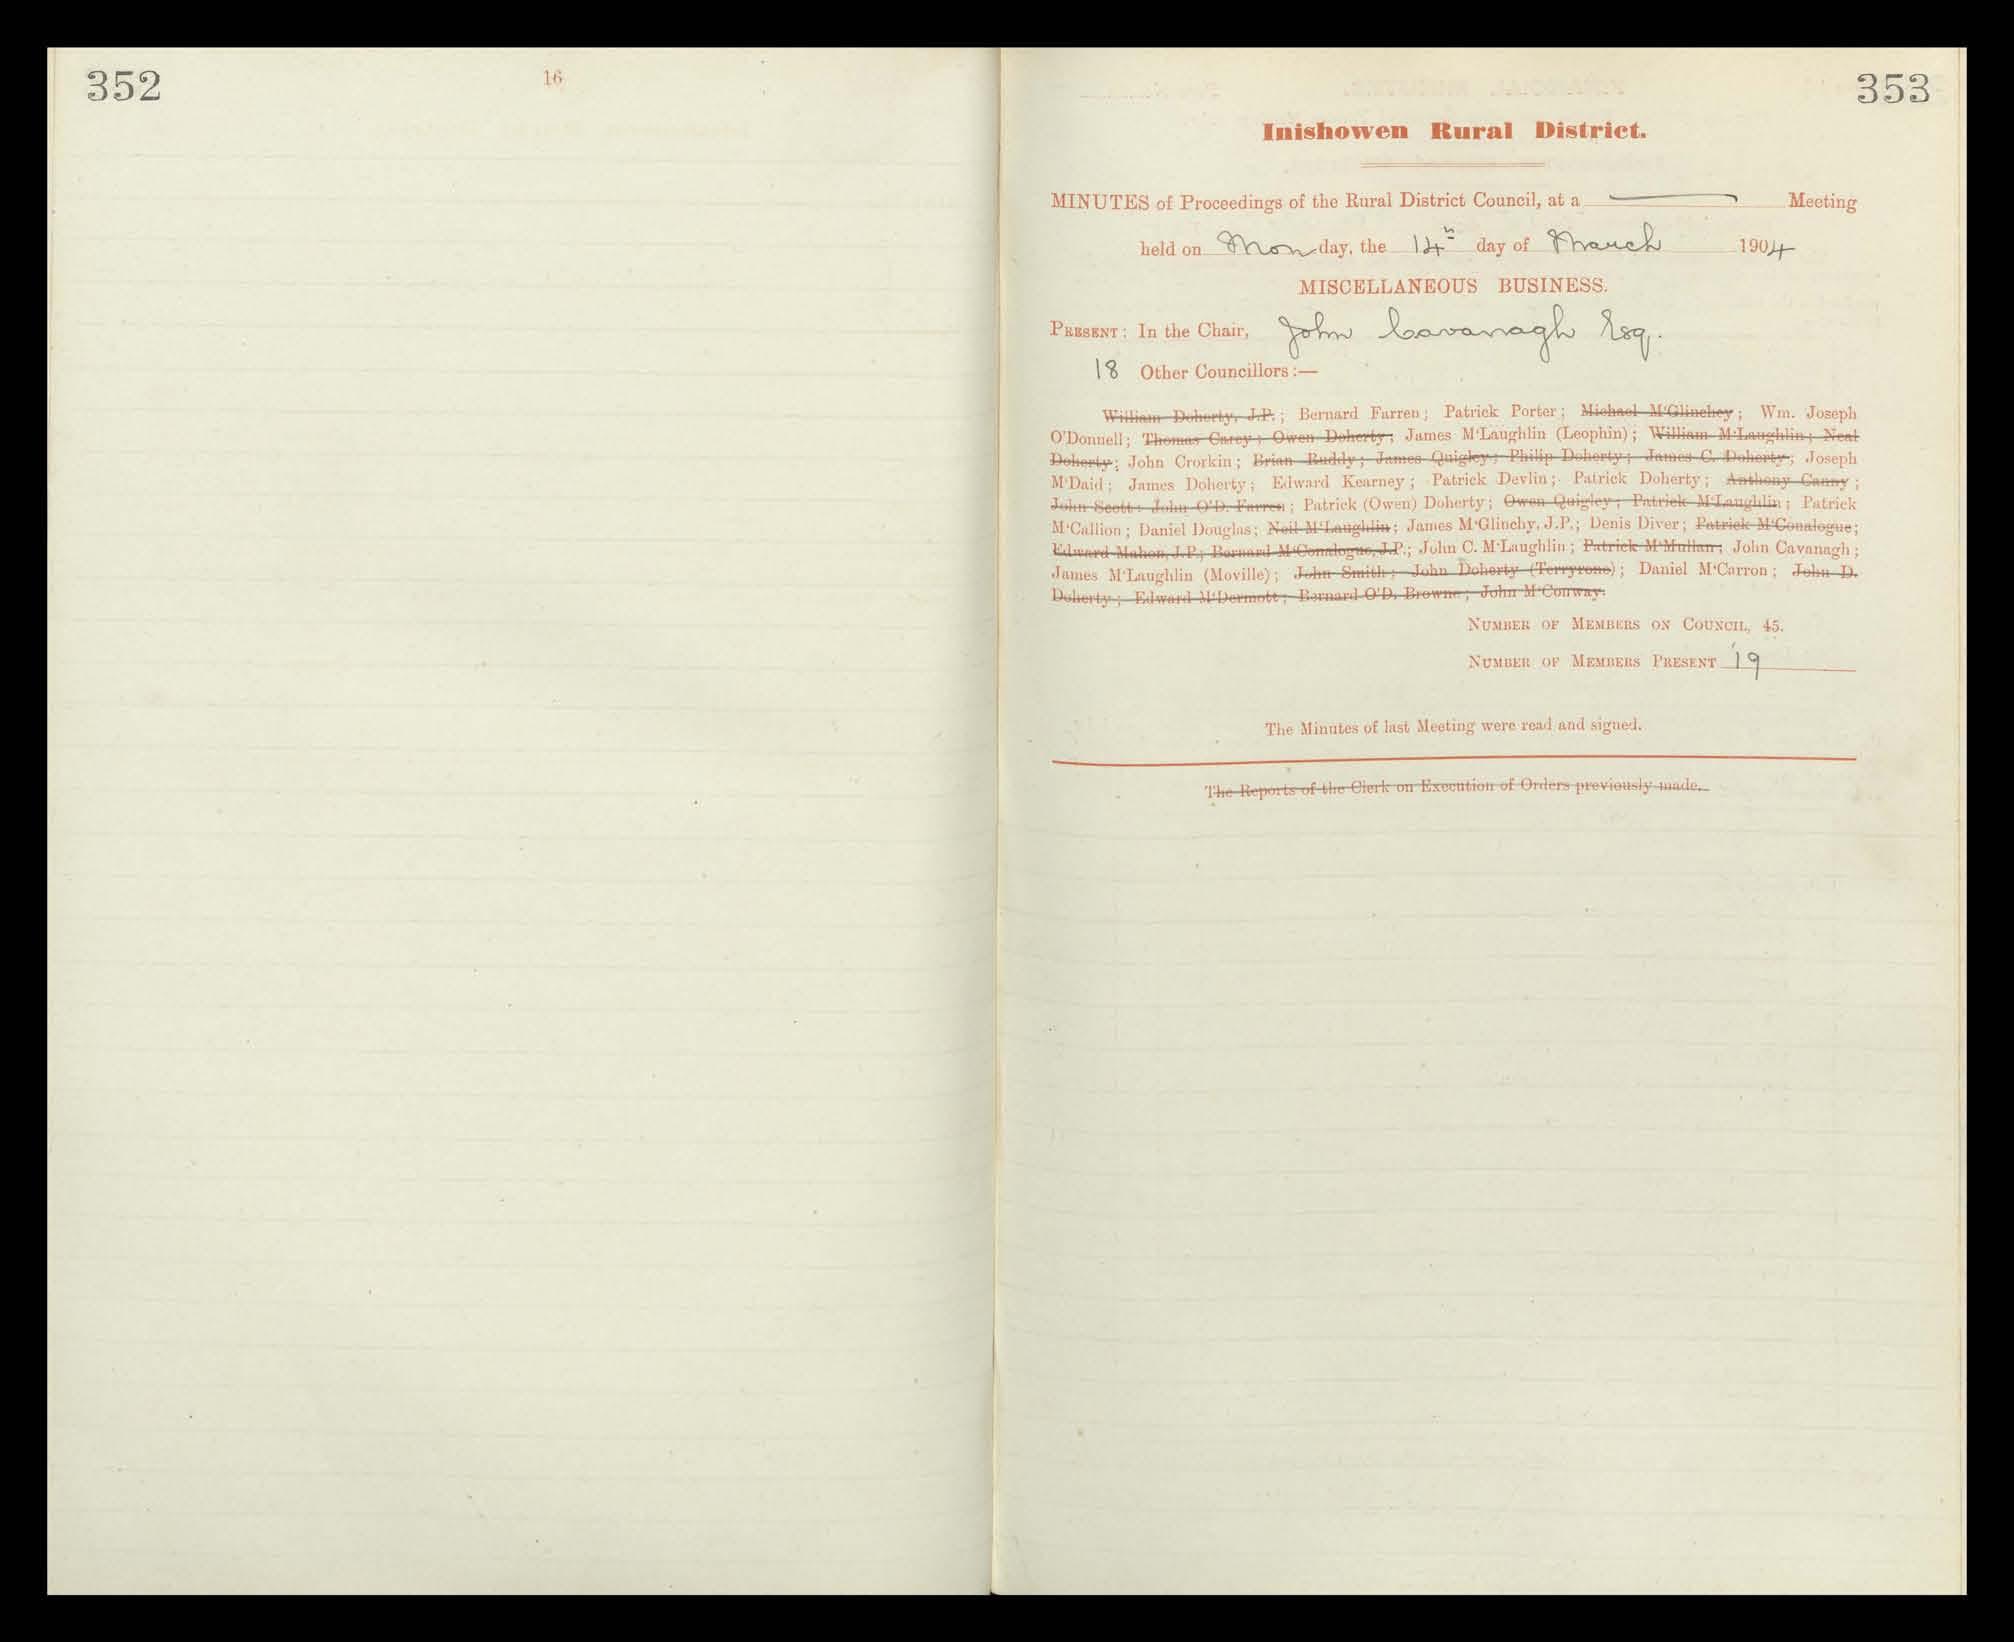 352
16
353
Inishowen Rural District.
MINUTES of Proceedings of the Rural District Council, at a Meeting
held on Monday, the 14th day of March 1904
MISCELLANEOUS BUSINESS.
PRESENT: In the Chair, John Cavanagh Esq.
18 Other Councillors:—
William Doherty, J.P.; Bernard Farren; Patrick Porter; Michael M'Glinchey; Wm. Joseph
O'Donnell; Thomas Carey; Owen Doherty; James M'Laughlin (Leophin); William M'Laughlin; Neal
Doherty; John Crorkin; Brian Ruddy; James Quigley; Philip Doherty; James C. Doherty; Joseph
M'Daid; James Doherty; Edward Kearney; Patrick Devlin; Patrick Doherty; Anthony Canny;
John Scott; John O'D. Farren; Patrick (Owen) Doherty; Owen Quigley; Patrick M'Laughlin; Patrick
M'Callion; Daniel Douglas; Neil M'Laughlin; James M'Glinchy, J.P.; Denis Diver; Patrick M'Conalogue;
Edward Mahon, J.P.; Bernard M'Conalogue, J.P.; John C. M'Laughlin; Patrick M'Mullan; John Cavanagh;
James M'Laughlin (Moville); John Smith; John Doherty (Terryrone); Daniel M'Carron; John D.
Doherty; Edward M'Dermott; Bernard O'D. Browne; John M'Conway.
NUMBER OF MEMBERS ON COUNCIL, 45.
NUMBER OF MEMBERS PRESENT 19
The Minutes of last Meeting were read and signed.
The Reports of the Clerk on Execution of Orders previously made.